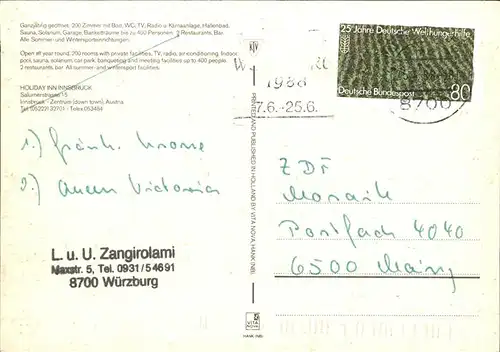 Ganzjährig geöffnet, 200 Zimmer mit Bad, WC, TV, Radio u. Klimaanlage, Hallenbad,
Sauna, Solarium, Garage, Bankettsräume bis zu 400 Personen. 2 Restaurants, Bar.
Alle Sommer- und Wintersporteinrichtungen.
Open all year round. 200 rooms with private facilities, TV, radio, air-conditioning. Indoor
pool, sauna, solarium, car park, banqueting and meeting facilities up to 400 people.
2 restaurants, bar. All summer- and wintersport facilities.
HOLIDAY INN INNSBRUCK
Salurnerstrasse 15
Innsbruck - Zentrum (down town), Austria
1.)
2.) Queen Victoria
L. u. U. Zangirolami
Maxstr. 5, Tel. 0931/54691
8700 Würzburg
PRINTED AND PUBLISHED IN HOLLAND BY VITA NOVA, HANK (NB)
VITA
NOVA
25 Jahre Deutsche Welthungerhilfe
Deutsche Bundespost 80
1988
7.6.-25.6.
8700
ZDF
Mosaik
Postfach 4040
6500 Mainz